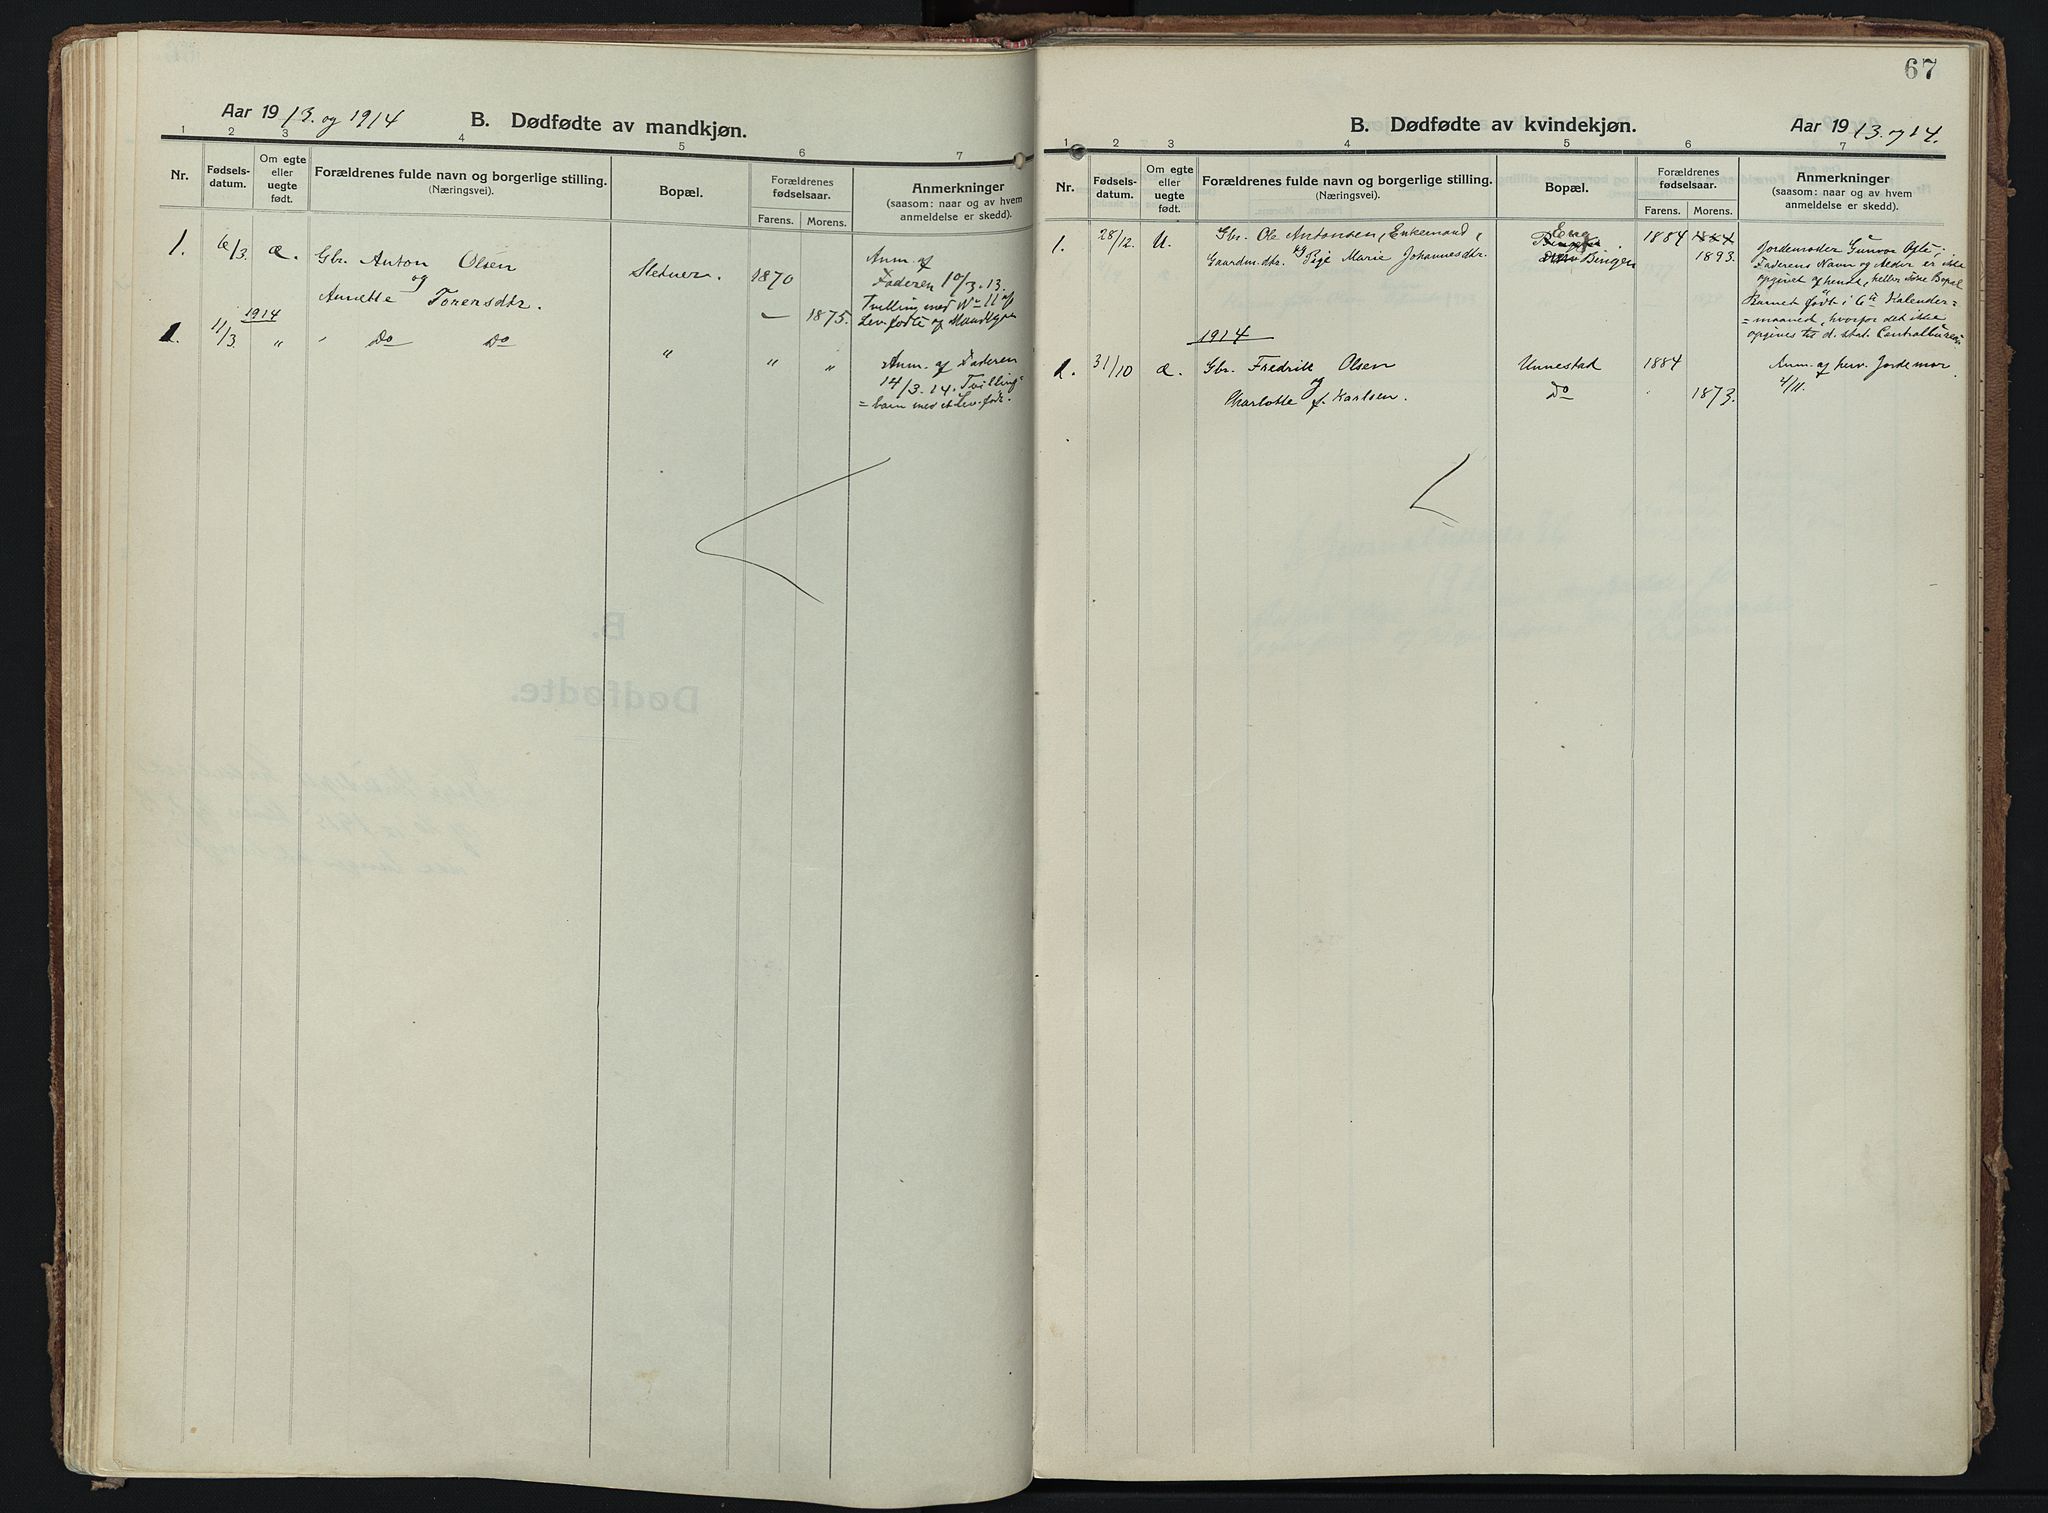 Aar 1913. og 1914
B. Dødfødte av mandkjøn.
1 2 3 4 5 6 7
Nr.
Fødsels-
datum.
Om egte
eller
uegte
født.
Forældrenes fulde navn og borgerlige stilling.
(Næringsvei).
Bopæl.
Forældrenes
fødselsaar.
Farens. Morens.
Anmerkninger
(saasom: naar og av hvem
anmeldelse er skedd).
1. 6/3. æ. Gbr. Anton Olsen
og
Annette Torersdtr.
Sletner. 1870
- 1875.
Anm. af
Faderen 10/3. 13.
Tvilling med No 11 af
Lev. fødte og Mandkjøn
1914
1. 11/3. " " Do Do " " "
Anm. af Faderen
14/3. 14. Tvilling=
=barn med et Lev. født.
67
B. Dødfødte av kvindekjøn.
Aar 1913. og 14.
1 2 3 4 5 6 7
Nr.
Fødsels-
datum.
Om egte
eller
uegte
født.
Forældrenes fulde navn og borgerlige stilling.
(Næringsvei).
Bopæl.
Forældrenes
fødselsaar.
Farens. Morens.
Anmerkninger
(saasom: naar og av hvem
anmeldelse er skedd).
1. 28/12. U. Gbr. Ole Antonsen, Enkemand,
og
Gaardm. dtr. Pige Marie Johannesdtr.
Bingen
1884 1884
1893.
Jordemoder Gunvor Ogte,
Faderens Navn og Alder er ikke
opgivet af hende, heller ikke Bopæl
Barnet født i 6te Kalender=
=maaned, hvorfor det ikke
opgives til d. stat. Centralbureau
1914
1. 31/10 æ. Gbr. Fredrik Olsen
og
Charlotte f. Karlsen.
Unnestad 1884
Do 1873.
Anm. af herv. Jordemor
4/11.
B.
Dødfødte.